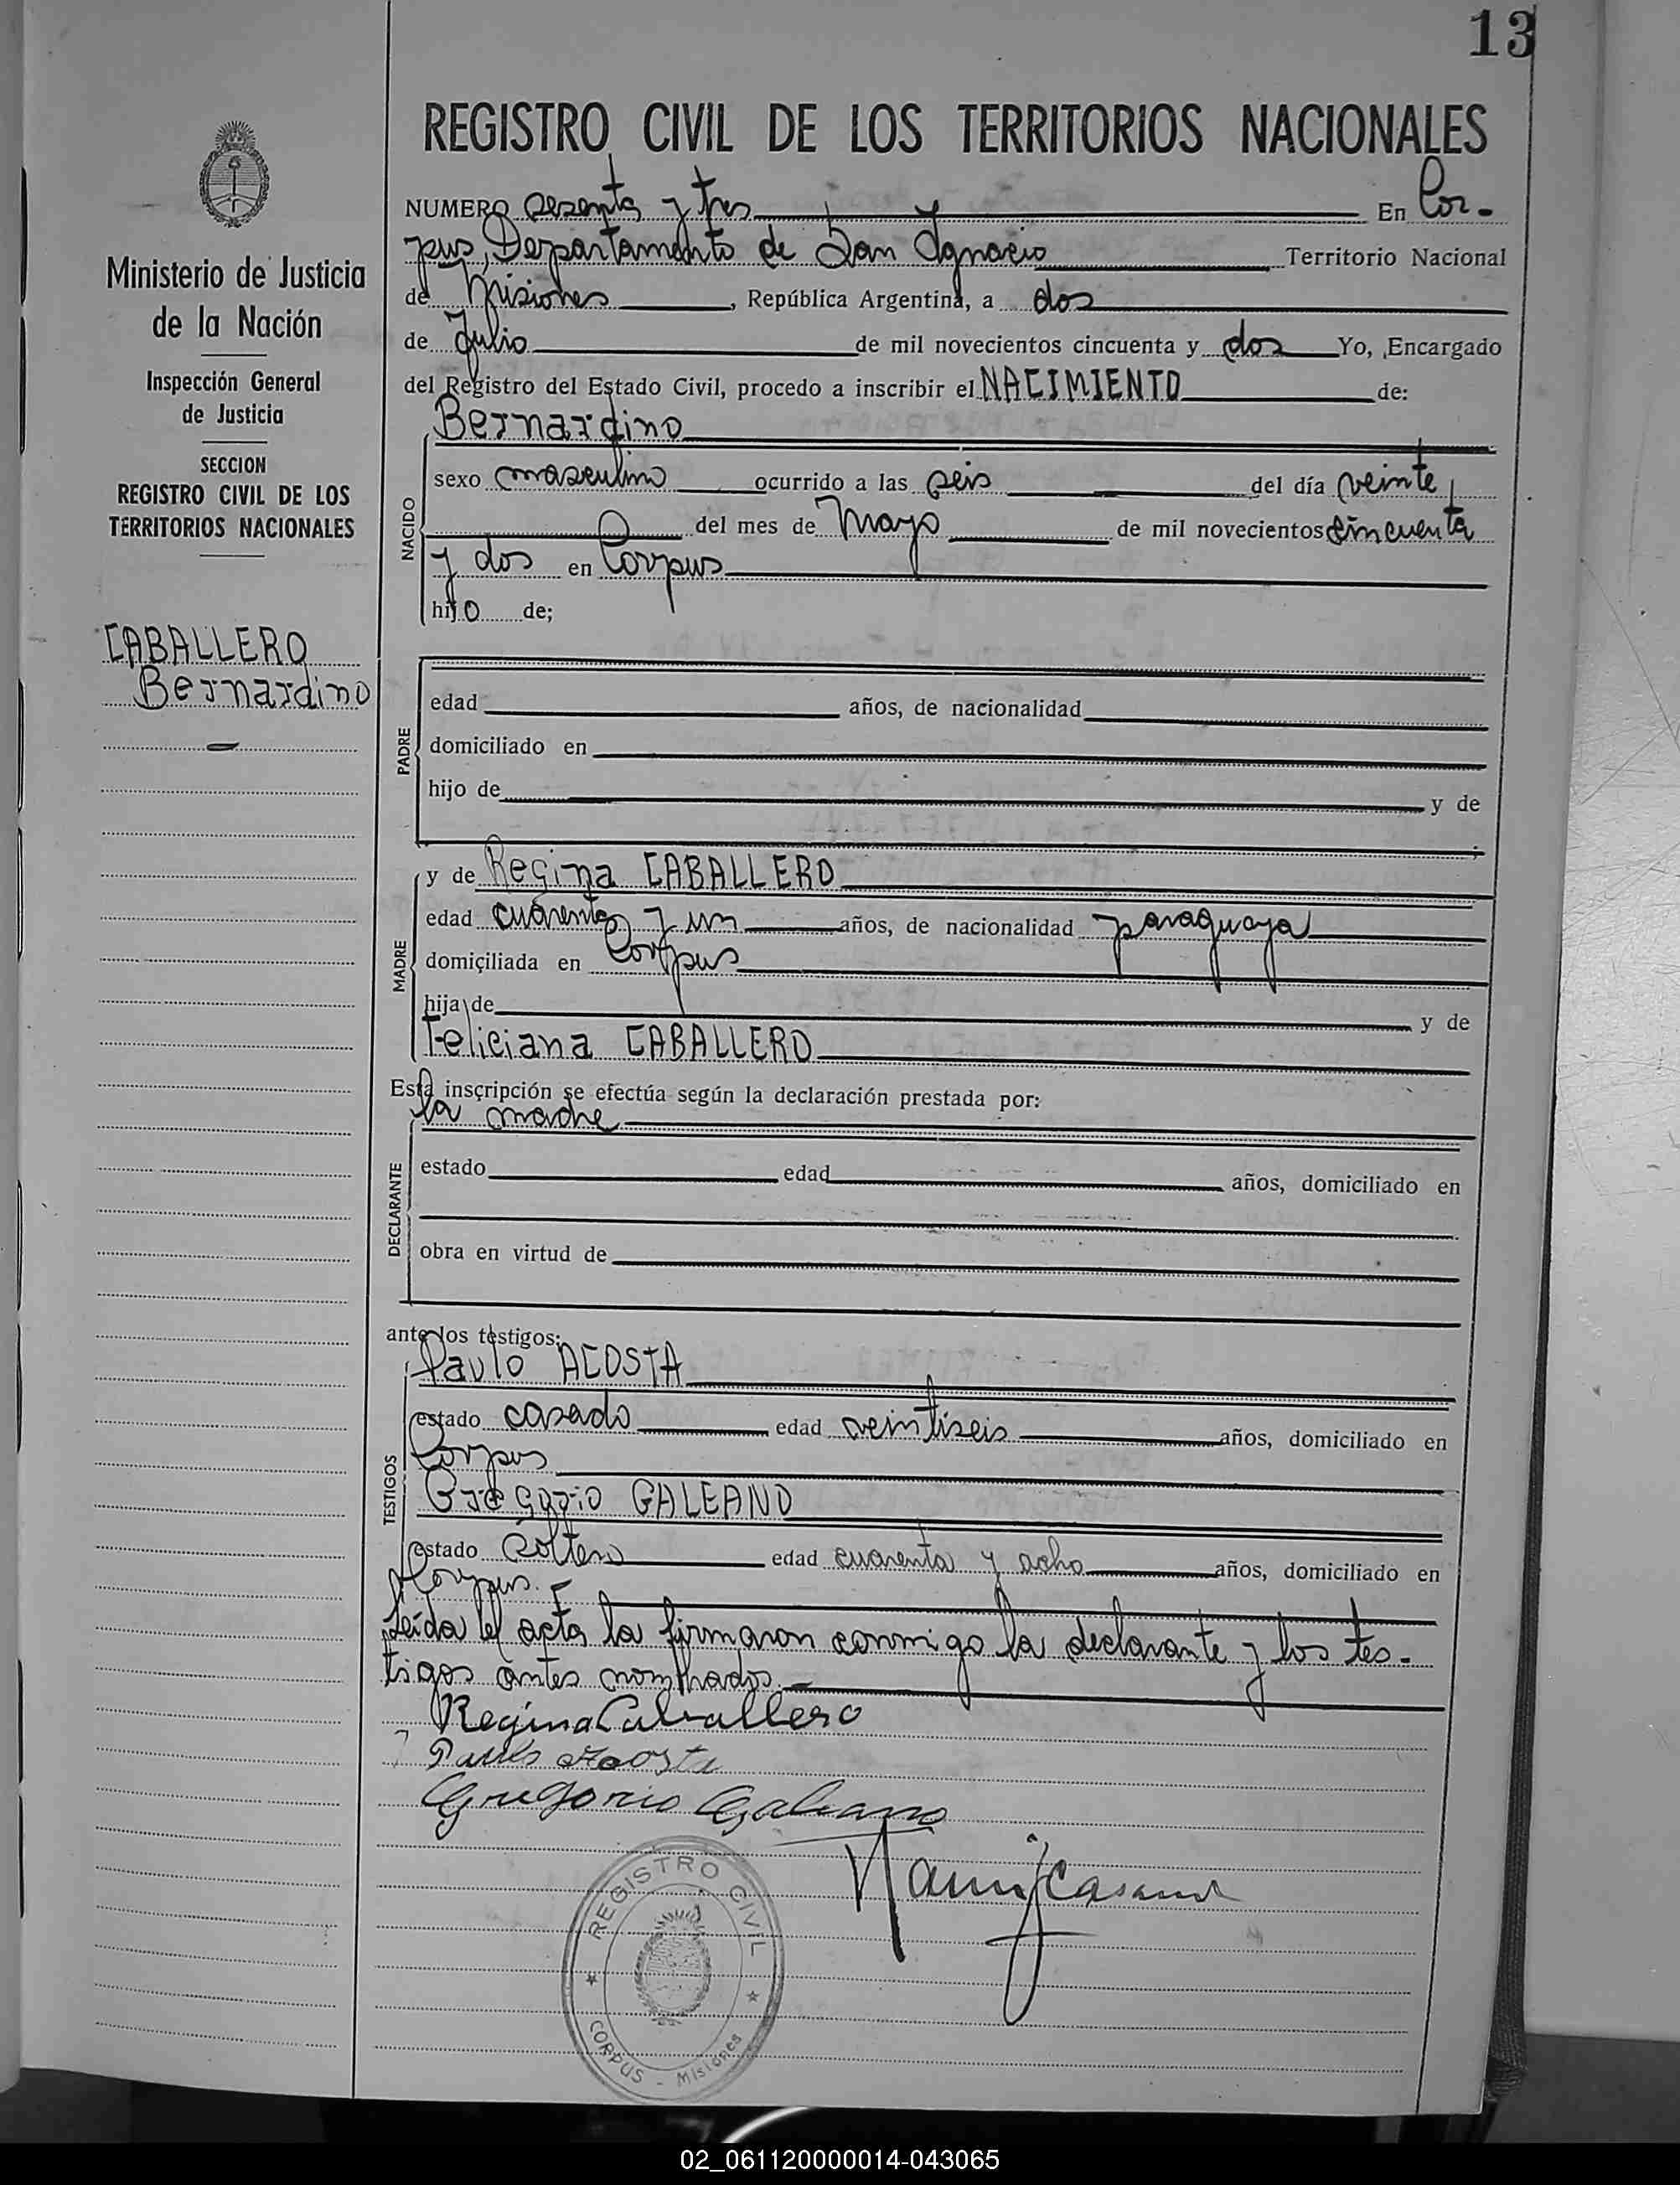 13
REGISTRO CIVIL DE LOS TERRITORIOS NACIONALES
Ministerio de Justicia
de la Nación
Inspección General
de Justicia
SECCION
REGISTRO CIVIL DE LOS
TERRITORIOS NACIONALES
CABALLERO
Bernardino
NUMERO sesenta y tres En Cor-
pus, Departamento de San Ignacio Territorio Nacional
de Misiones, República Argentina, a dos
de Julio de mil novecientos cincuenta y dos Yo, Encargado
del Registro del Estado Civil, procedo a inscribir el NACIMIENTO de:
NACIDO
Bernardino
sexo masculino ocurrido a las seis del día veinte
del mes de Mayo de mil novecientos cincuenta
y dos en Corpus
hijo de;
PADRE
edad años, de nacionalidad
domiciliado en
hijo de y de
MADRE
y de Regina CABALLERO
edad cuarenta y un años, de nacionalidad paraguaya
domiciliada en Corpus
hija de y de
Feliciana CABALLERO
Esta inscripción se efectúa según la declaración prestada por:
DECLARANTE
la madre
estado edad años, domiciliado en
obra en virtud de
ante los testigos:
TESTIGOS
Paulo ACOSTA
estado casado edad veintiseis años, domiciliado en
Corpus
Gregorio GALEANO
estado soltero edad cuarenta y ocho años, domiciliado en
Corpus.
Leída el acta la firmaron conmigo la declarante y los tes-
tigos antes nombrados.
Regina Caballero
Paulo Acosta
Gregorio Galeano
REGISTRO CIVIL
CORPUS - Misiones
02_061120000014-043065